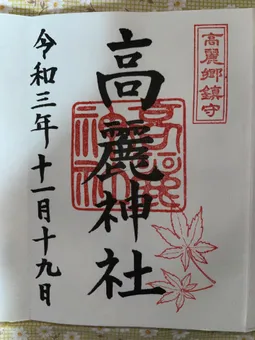 高麗郷鎮守
高麗神社
高麗神社
令和三年十一月十九日